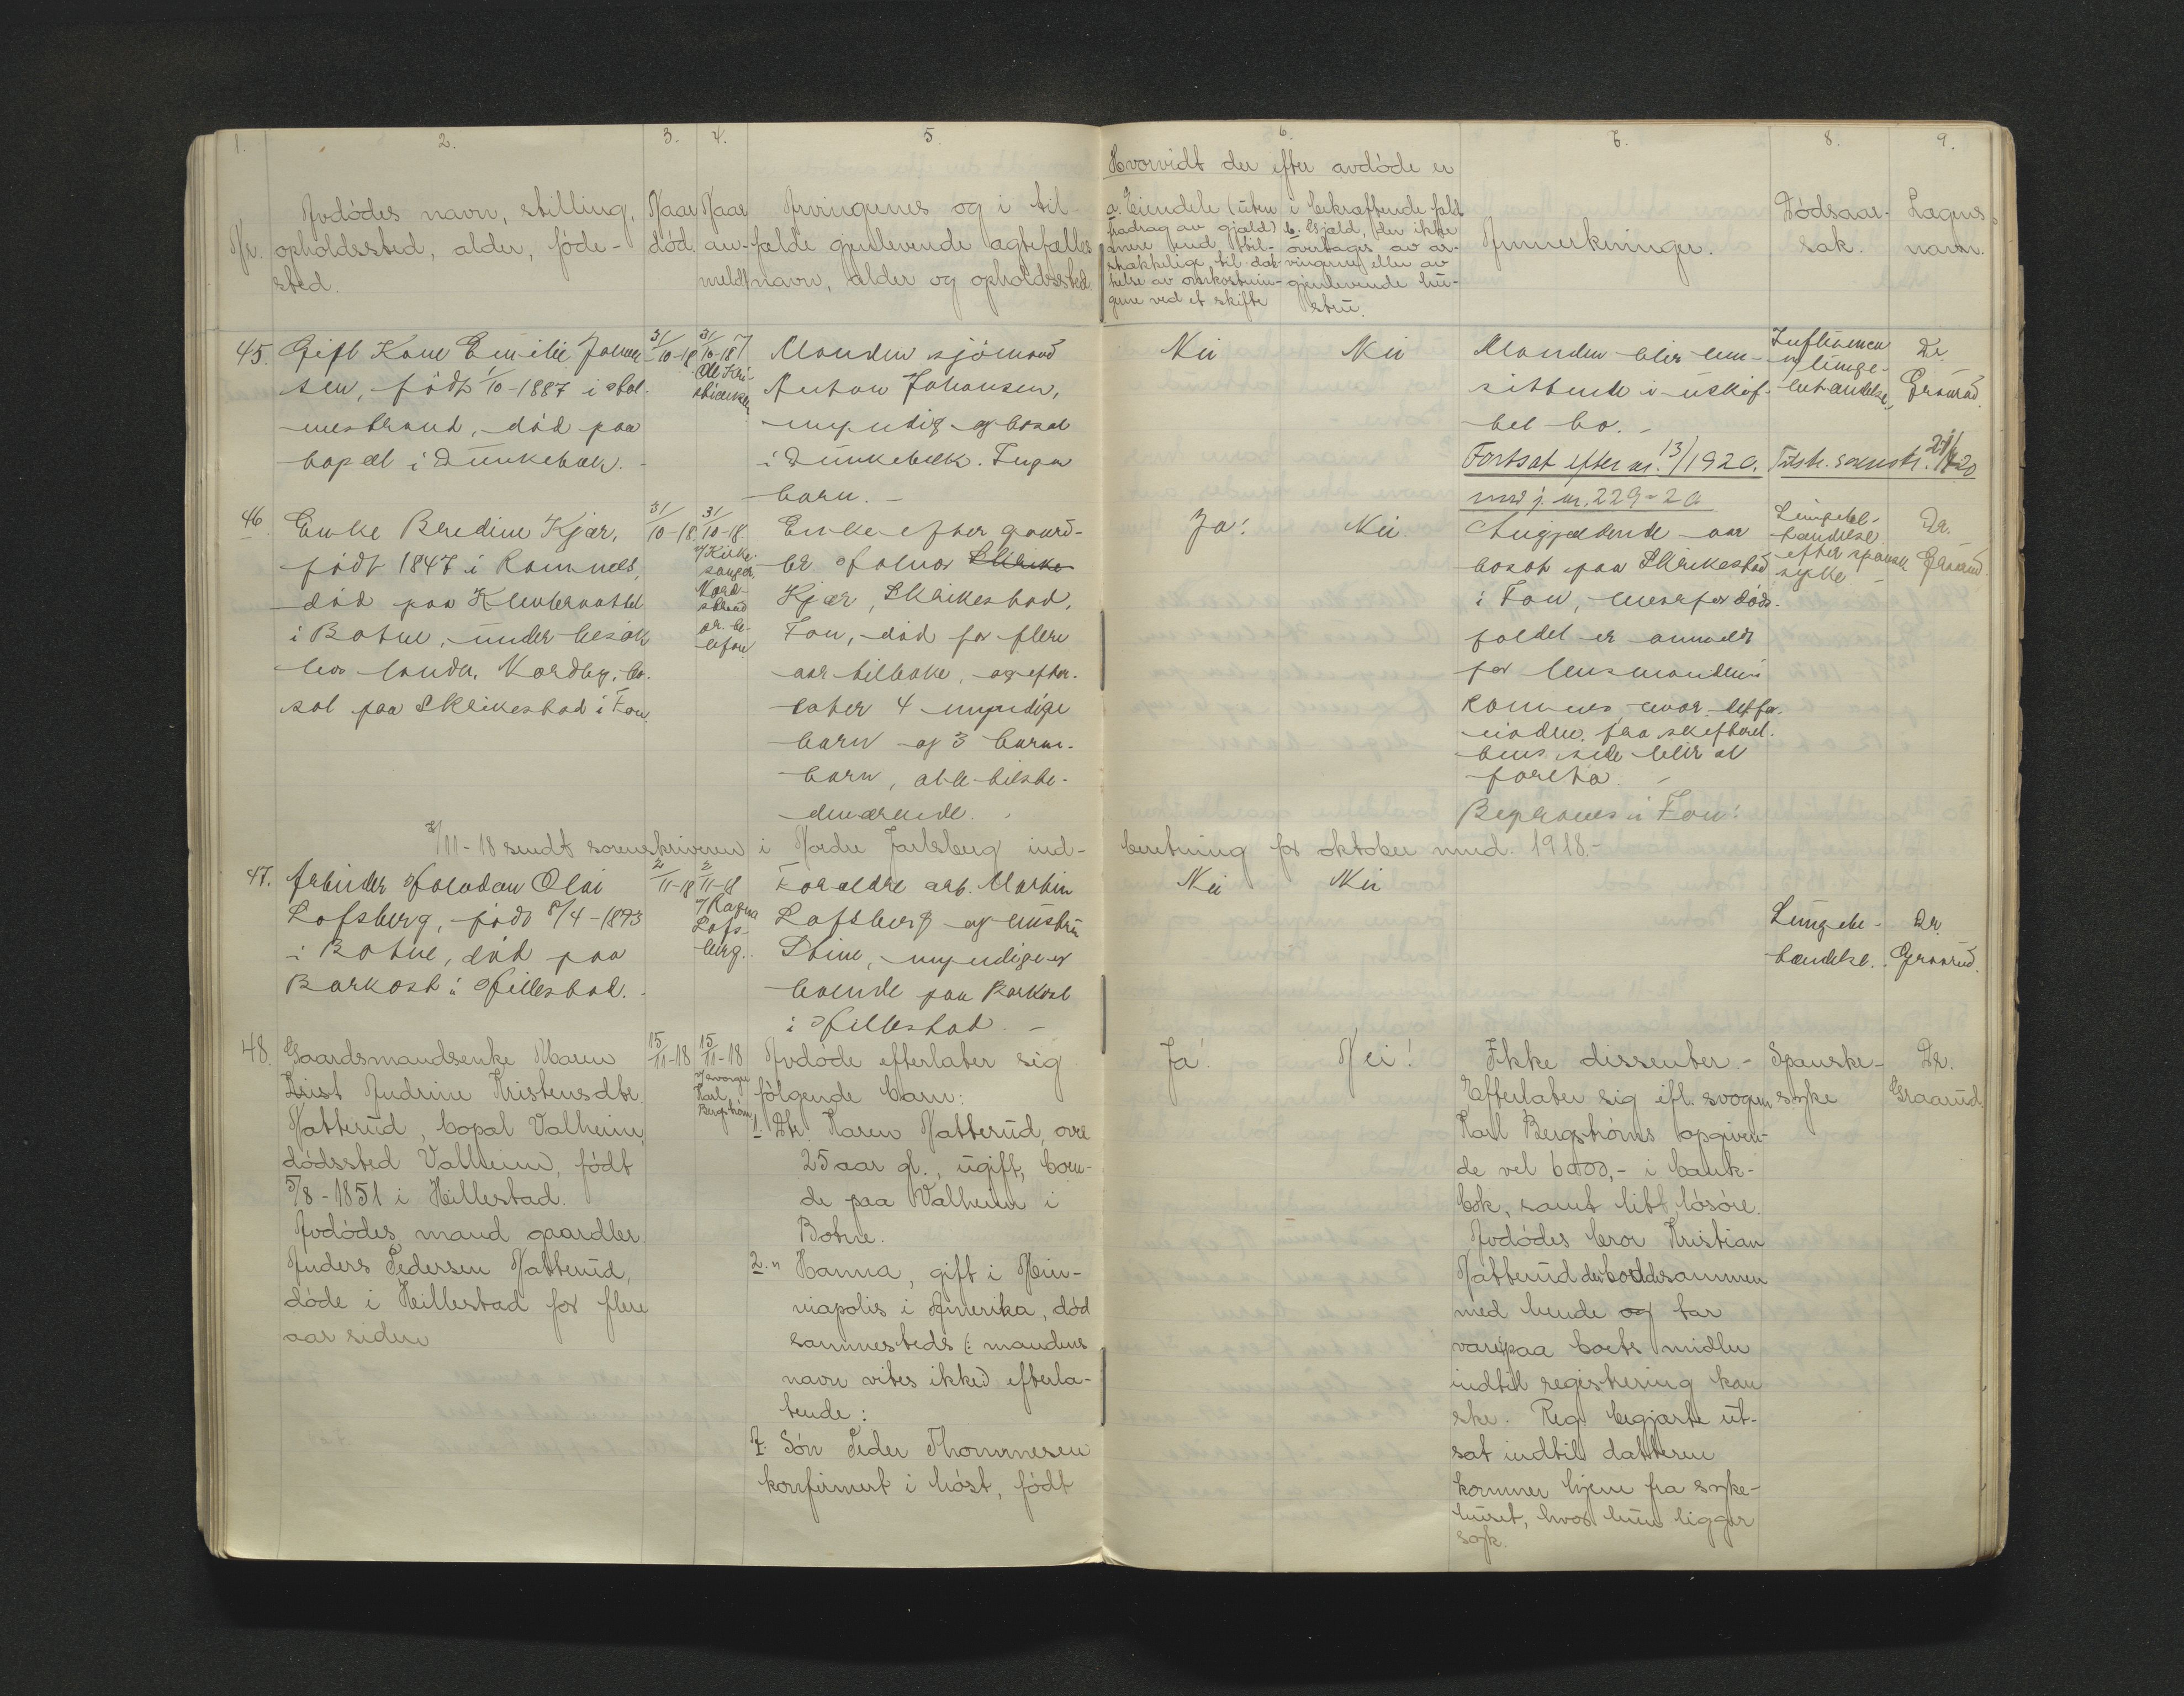 1. 2. 3. 4. 5. 6. 7. 8. 9.
Nr.
Avdödes navn, stilling,
opholdssted, alder, föde-
sted.
Naar
död.
Naar
an-
meldt
Arvingernes og i til-
fælde gjenlevende ægtefælles
navn, alder og opholdssted.
Hvorvidt der efter avdöde er
a. Eiendele (uten
fradrag av gjæld)
mere end til-
strækkelige til dæk-
kelse av omkostnin-
gene ved et skifte
i bekræftende fald
b. Gjæld, der ikke
overtages av ar-
vingerne eller av
gjenlevende hu-
stru.
Anmerkninger.
Dödsaar-
sak.
Lægens
navn.
45.
Gift Kone Emilie Johan
sen, födt 1/10-1887 i Hol-
mestrand, död paa
bopæl i Dunkebæk.
31/10-18
31/10-18
Ole Kri-
stiansen
Manden sjömand
Anton Johansen,
myndig og bosat
i Dunkebæk. Ingen
barn. -
Nei
Nei
Manden blir hen-
sittende i uskif-
tet bo. -
Fortsat efter nr. 13/1920.
med j. nr. 229-20
Influensa
m/lunge-
betændelse
Dr.
Graarud
46
Enke Bredine Kjær,
födt 1847 i Ramnes,
död paa Klevernattel
i Botne, under besök
hos landh. Nordby, bo-
sat paa Skrikestad i Fon.
31/10-18
31/10-18
v/ Kirke-
sanger
Nord-
strand
pr. te-
lefon
Enke efter gaard-
br Halvor Skrike
Kjær, Skrikestad,
Fon, död for flere
aar tilbake, og efter-
later 4 myndige
barn og 3 barne-
barn, alle tilste-
deværende.
Ja!
Nei
Angjældende var
bosat paa Skrikestad
i Fon, hvorfor döds-
faldet er anmeldt
for lensmanden i
Ramnes, hvor det for-
nödne fra skifteret-
tens side blir at
foreta. -
Begraves i Fon!
Lungebe-
tændelse
efter spansk
syke -
Dr.
Graarud
2/11-18 sendt sorenskriveren i Nordre Jarlsberg ind-
beretning for oktober mnd. 1918.-
47.
Arbeider Halvdan Olai
Lofsberg, född 8/4-1893
i Botne, död paa
Barkost i Hillestad.
2/11-18
2/11-18
v/ Ragna
Lofs-
berg.
Foraldre arb. Martin
Lofsberg og hustru
Stine, myndige er
boende paa Barkost
i Hillestad. -
Nei
Nei
Lungebe-
tændelse.
Dr.
Graarud.
48.
Gaardsmandsenke Maren
Krist Andrine Kristensdtr.
Hatterud, bopæl Valheim,
dödssted Valheim, född
5/8-1851 i Hillestad.
Avdödes mand gaardbr.
Anders Pedersen Hatterud,
döde i Hillestad for flere
aar siden
15/11-18
15/11-18
v/ svoger
Karl
Bergström
Avdöde efterlater sig
fölgende barn:
1. Dtr. Karen Hatterud, over
25 aar gl., ugift, boen-
de paa Valheim i
Botne.
2. " Hanna, gift i Min-
niapolis i Amerika, död
sammesteds (: mandens
navn vites ikke) efterla-
tende:
I. Sön Peder Thommesen
konfirmert i höst, födt
Ja!
Nei!
Ikke dissenter -
Efterlater sig efl. svogeren
Karl Bergströms opgiven-
de vel 6000,- i bank-
bok, samt litt lösöre.
Avdödes bror Kristian
Hatterud der bodde sammen
med hende og tar
vare paa boets midler
indtil registrering kan
ske. Reg. begjært ut-
sat indtil datteren
kommer hjem fra syke-
huset, hvor hun ligger
syk.
Spanske-
syke
Dr.
Graarud.